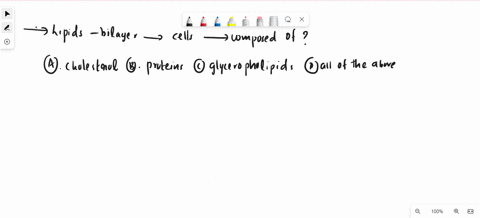 → Lipids - bilayer → cells → composed of ?
Ⓐ. cholesterol Ⓑ. proteins Ⓒ glyceropholipids Ⓓ all of the above
100%